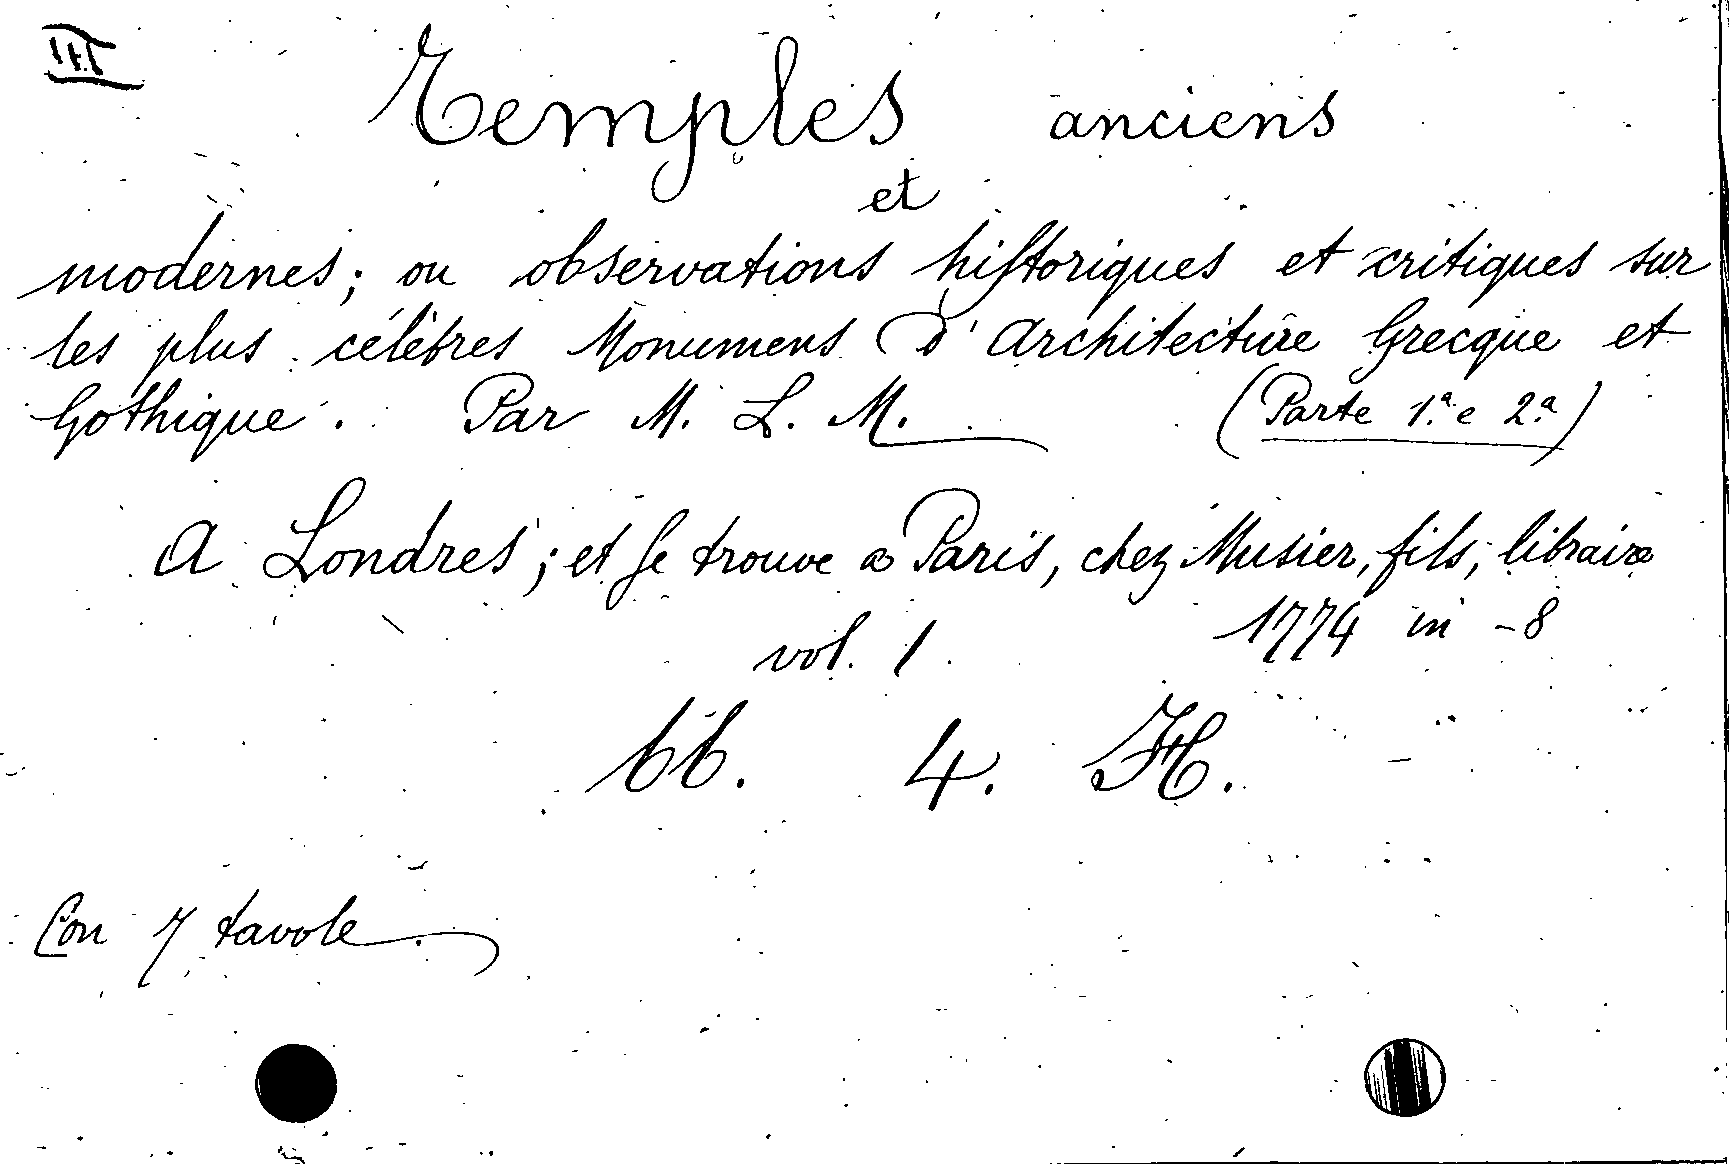 III
Temples anciens
et
modernes; ou observations hiſtoriques et critiques sur
les plus célèbres Monumens d'Architecture Grecque et
Gothique. Par M. L. M. (Parte 1.ª e 2.ª)
A Londres; et ſe trouve a Paris, chez Musier, fils, libraire
1774 in -8
vol. 1.
bb. 4. H.
Con 7 tavole.